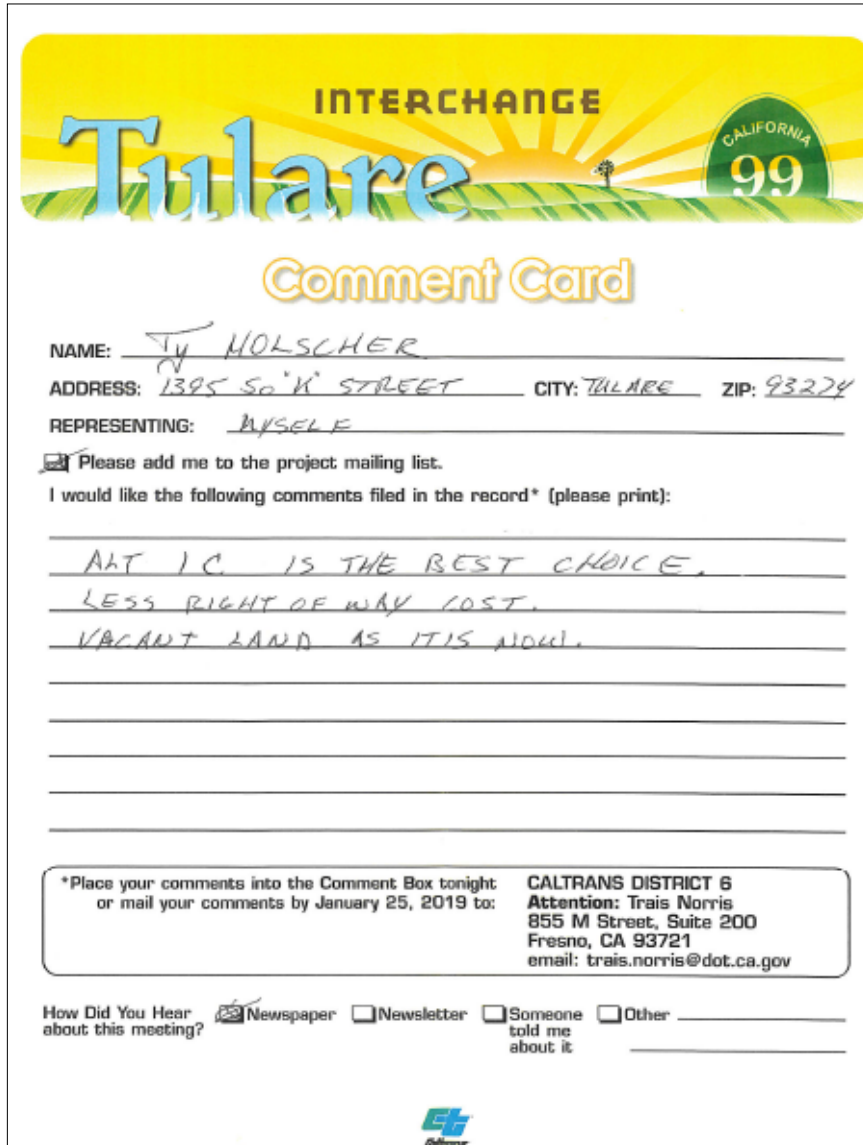 INTERCHANGE
Tulare
CALIFORNIA
99
Comment Card
NAME: Ty HOLSCHER
ADDRESS: 1395 So "K" STREET CITY: TULARE ZIP: 93274
REPRESENTING: MYSELF
Please add me to the project mailing list.
I would like the following comments filed in the record* (please print):
ALT 1C IS THE BEST CHOICE.
LESS RIGHT OF WAY COST.
VACANT LAND AS IT IS NOW.
*Place your comments into the Comment Box tonight
or mail your comments by January 25, 2019 to:
CALTRANS DISTRICT 6
Attention: Trais Norris
855 M Street, Suite 200
Fresno, CA 93721
email: trais.norris@dot.ca.gov
How Did You Hear
about this meeting?
Newspaper
Newsletter
Someone
told me
about it
Other
Ct
Caltrans